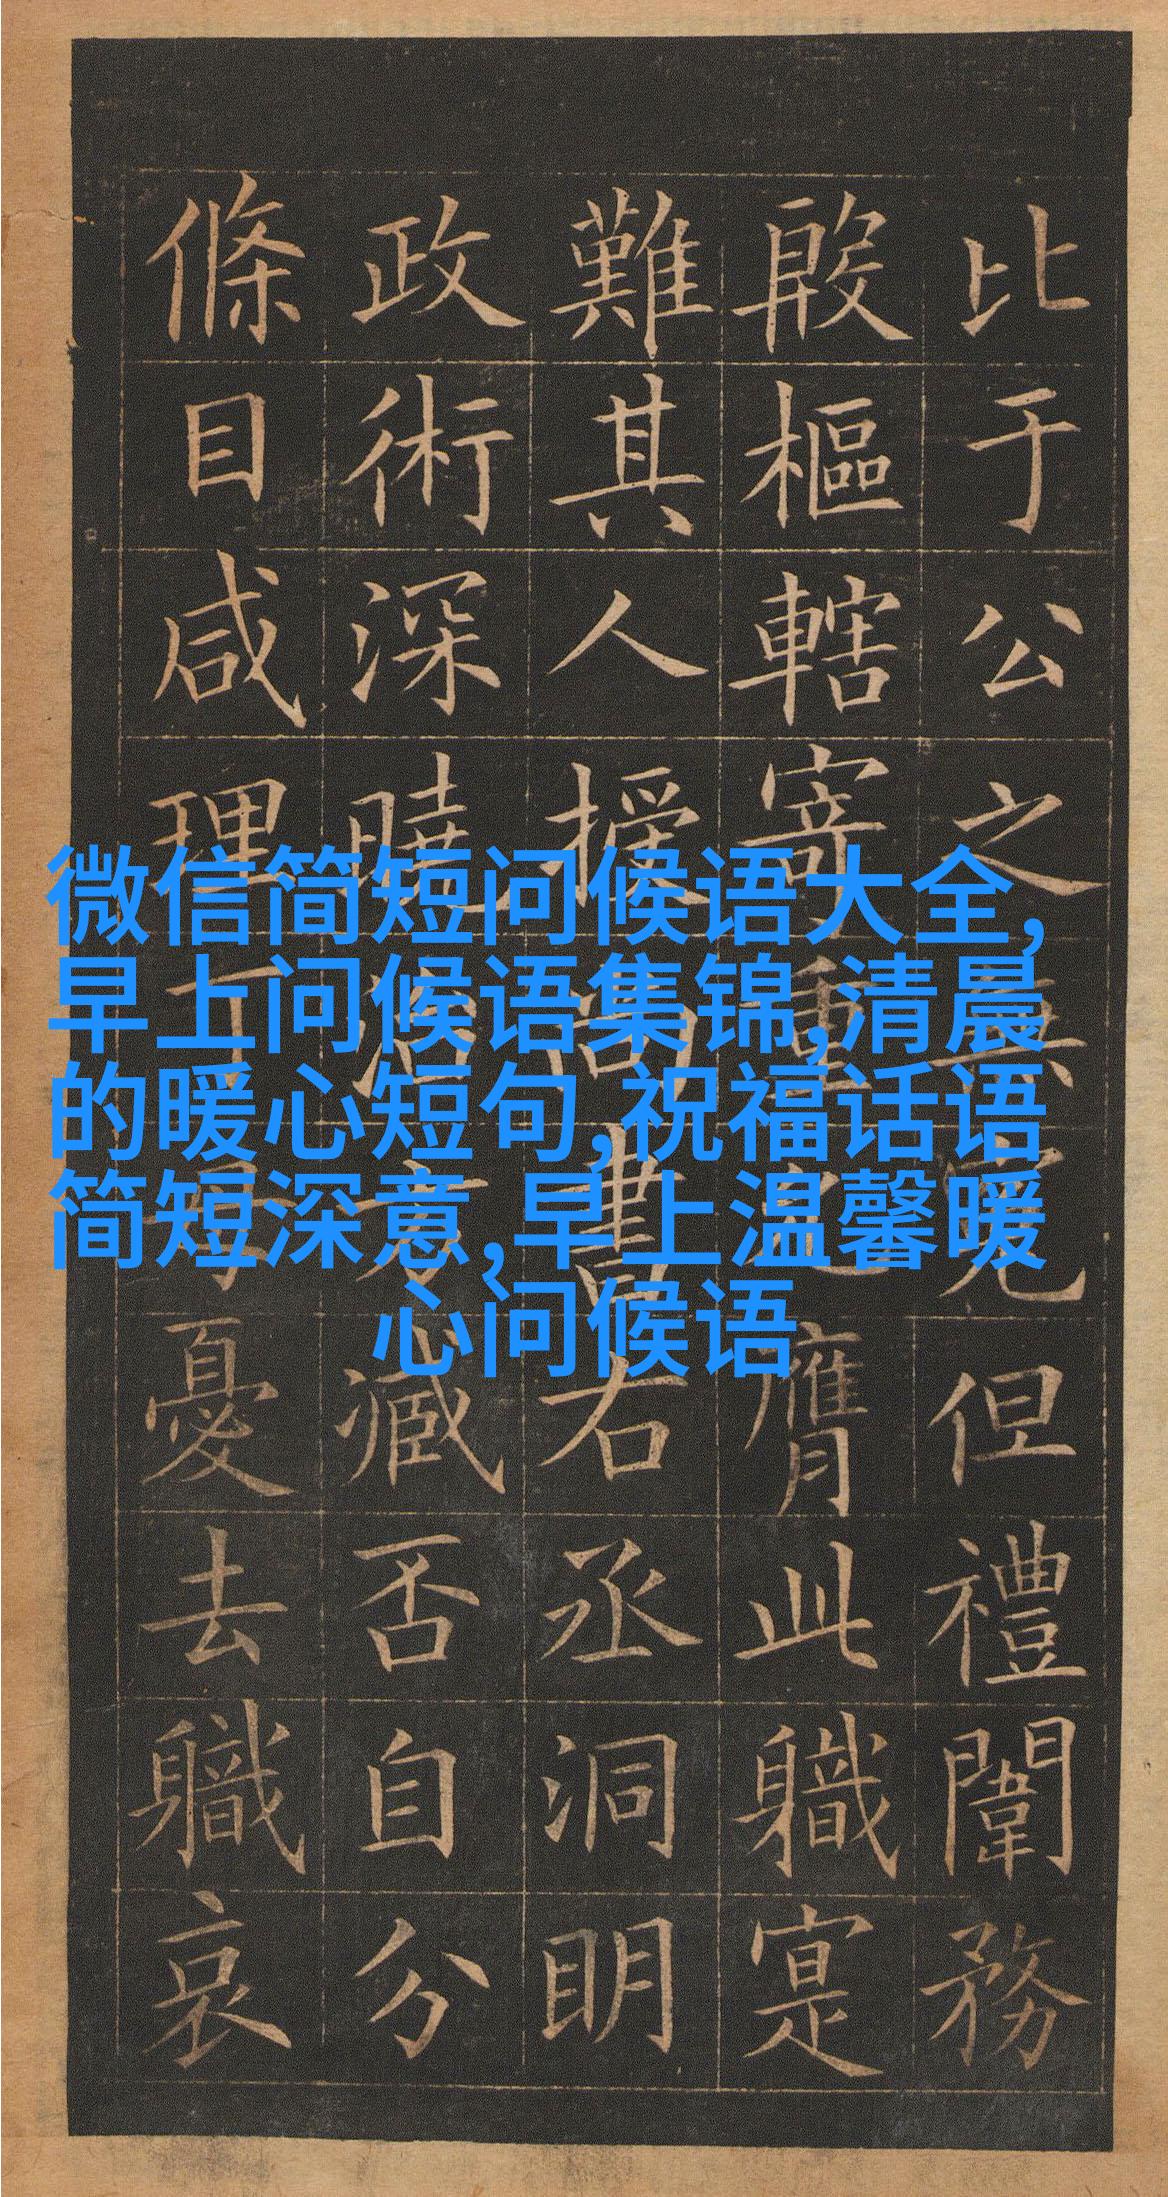 比于公之但禮闈務
殷樞轄寄重允膺此職寔
難其人授尚書右丞洞明
政術深曉治方臧否自分
條目咸理丁母憂去職哀
微信简短问候语大全,
早上问候语集锦,清晨
的暖心短句,祝福话语
简短深意,早上温馨暖
心问候语